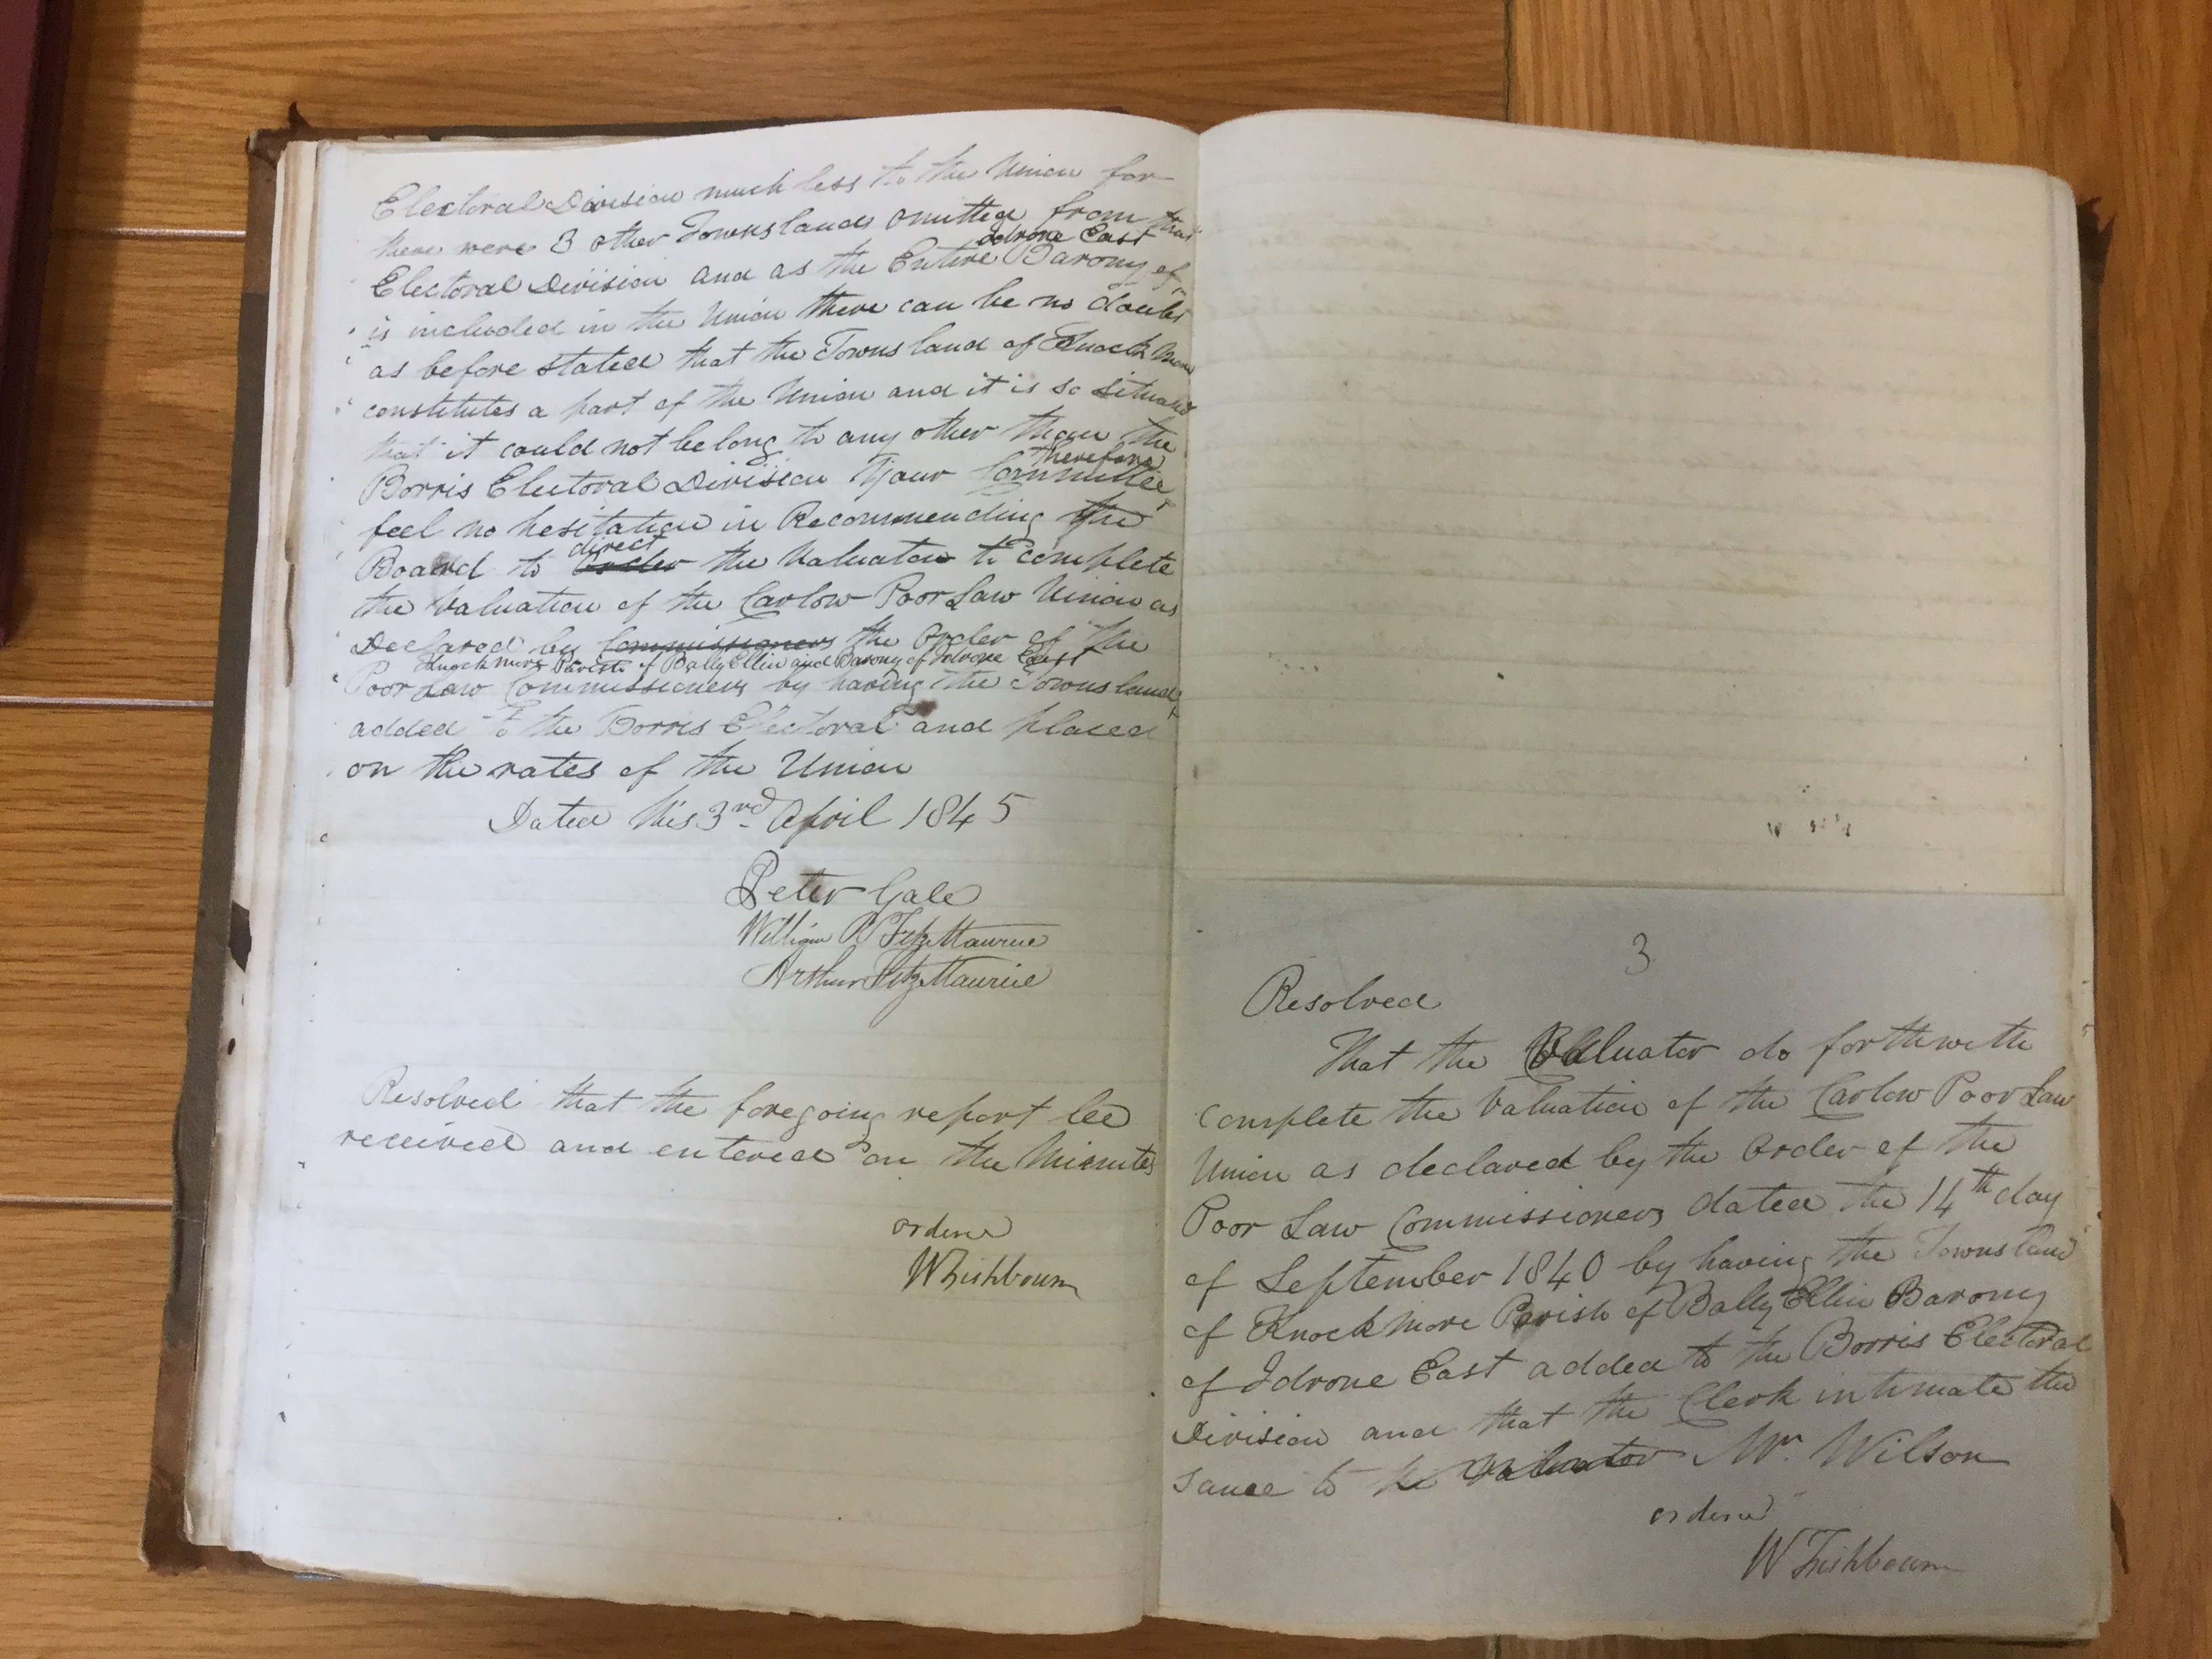 Electoral Division much less to the Union for
there were 3 other Townslands omitted from that
Idrone East
Electoral Division and as the Entire Barony of
is included in the Union there can be no doubt
as before stated that the Townsland of Knockmore
constitutes a part of the Union and it is so situated
that it could not belong to any other than the
therefore
Borris Electoral Division Your Committee
feel no hesitation in Recommending the
direct
Board to Order the Valuator to complete
the Valuation of the Carlow Poor Law Union as
Declared by Commissioners the Order of the
Knockmore Parish of BallyEllin and Barony of Idrone East
Poor Law Commissioners by having the Townsland
added to the Borris Electoral and placed
on the rates of the Union
Dated this 3rd April 1845
Peter Gale
William R FitzMaurice
Arthur FitzMaurice
Resolved that the foregoing report be
received and entered on the Minutes
ordered
W Fishbourn
3
Resolved
That the Valuator do forthwith
complete the Valuation of the Carlow Poor Law
Union as declared by the Order of the
Poor Law Commissioners dated the 14th day
of September 1840 by having the Townsland
of Knockmore Parish of BallyEllin Barony
of Idrone East added to the Borris Electoral
Division and that the Clerk intimate the
same to the Valuator Mr. Wilson
ordered
W Fishbourn